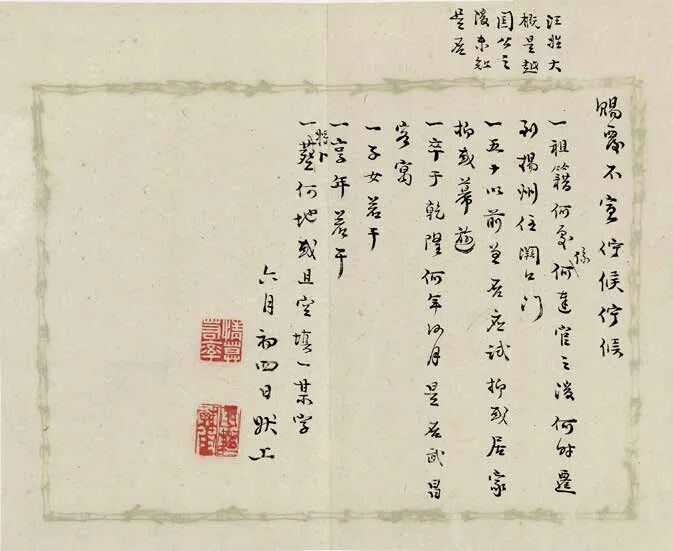 汪姓大
概是越
國公之
後未知
是否
賜覆不宣佇候佇候
一祖籍何處係何達官之後何時遷
到揚州住闕口門
一五十以前曾否應試抑或居家
抑或幕遊
一卒于乾隆何年何月是否武昌
客寓
一子女若干
一享年若干
一將卜葬何地或且空填一某字
六月初四日狀上